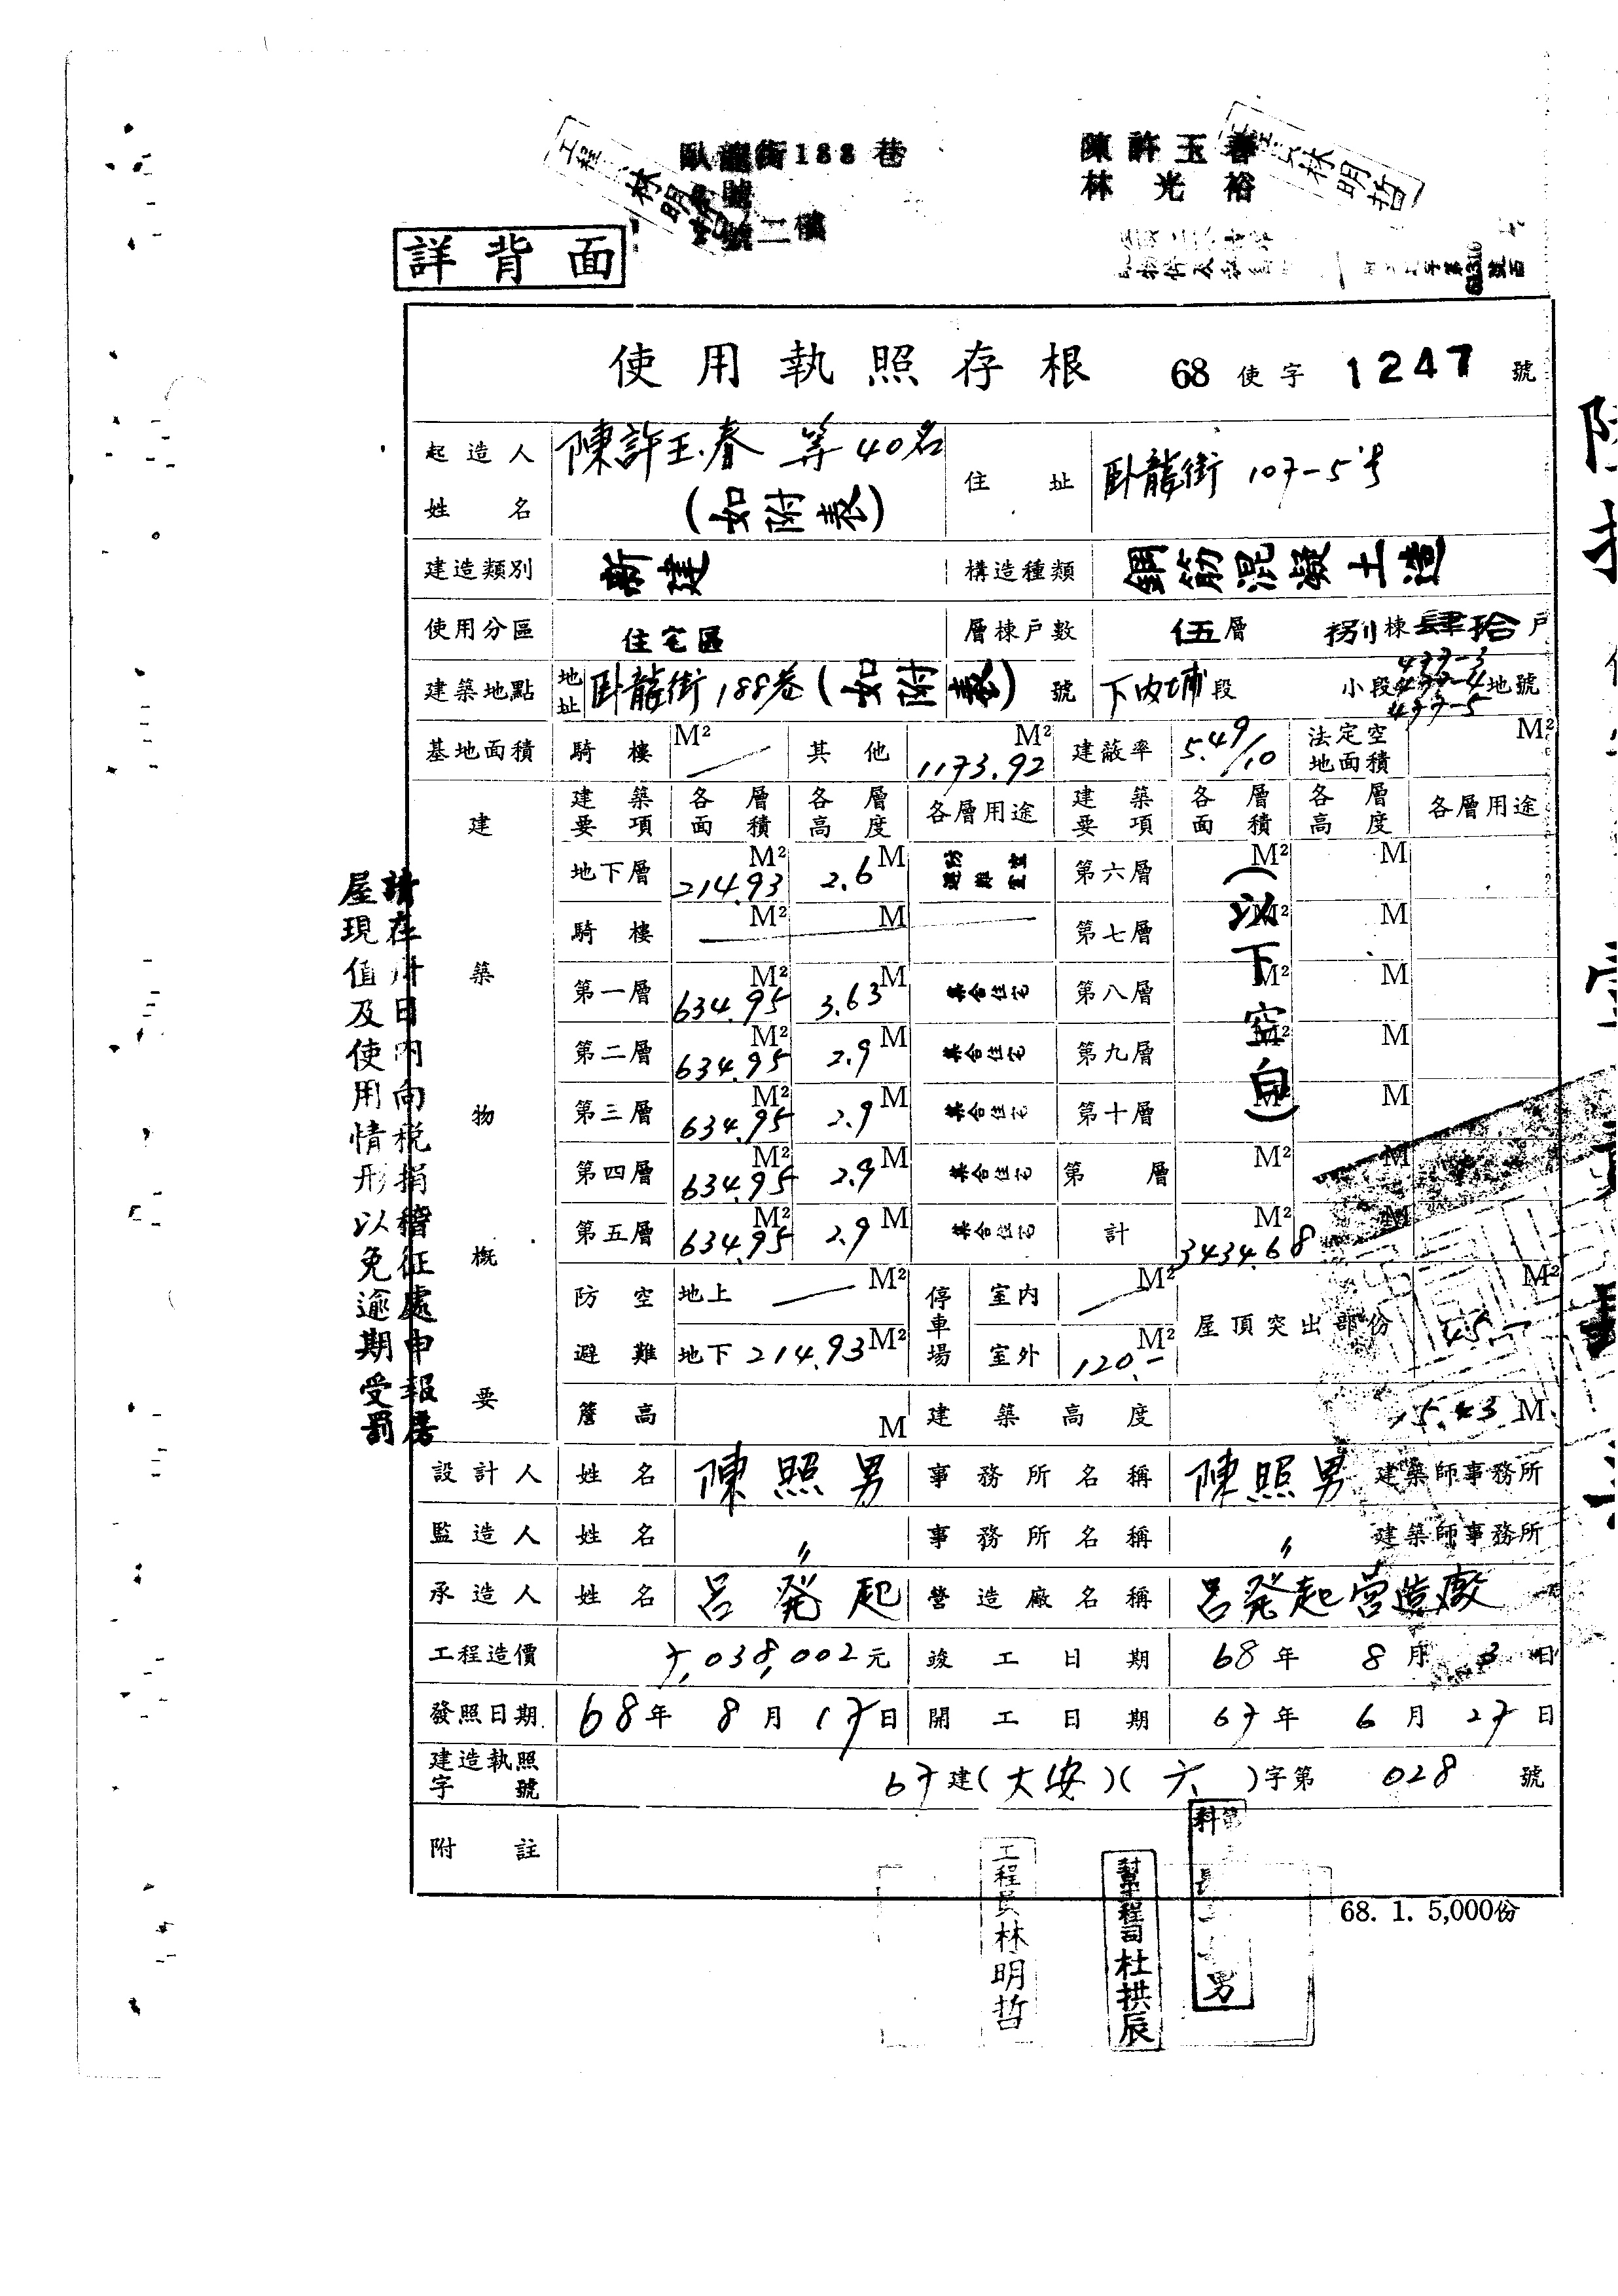 臥龍街188巷
號
號二樓
陳許玉春
林光裕
工程 林明哲
林明哲
詳背面
使用執照存根 68使字1247號
起造人姓名 陳許玉春 等40名 (如附表) 住址 臥龍街 107-5號
建造類別 新建 構造種類 鋼筋混凝土造
使用分區 住宅區 層棟戶數 伍層 捌棟肆拾戶
建築地點 地址 臥龍街188巷(如附表)號 下內埔段 小段 477-3 477-4 477-5 地號
基地面積 騎樓 M² — 其他 1173.92 M² 建蔽率 5.49/10 法定空地面積 M²
建築物概要
建築要項 各層面積 各層高度 各層用途 建築要項 各層面積 各層高度 各層用途
地下層 214.93 M² 2.6 M 避難室 第六層 M² M
騎樓 M² M 第七層 M² M
第一層 634.95 M² 3.63 M 集合住宅 第八層 M² M
第二層 634.95 M² 2.9 M 集合住宅 第九層 M² M
第三層 634.95 M² 2.9 M 集合住宅 第十層 M² M
第四層 634.95 M² 2.9 M 集合住宅 第 層 M² M
第五層 634.95 M² 2.9 M 集合住宅 計 3434.68 M² M
(以下空白)
防空避難 地上 — M² 停車場 室內 — M² 屋頂突出部份 45.- M²
地下 214.93 M² 室外 120.- M²
簷高 M 建築高度 15.43 M
設計人 姓名 陳照男 事務所名稱 陳照男 建築師事務所
監造人 姓名 〃 事務所名稱 〃 建築師事務所
承造人 姓名 呂發起 營造廠名稱 呂發起營造廠
工程造價 7,038,002元 竣工日期 68年 8月 3日
發照日期 68年 8月 17日 開工日期 67年 6月 27日
建造執照字號 67建(大安)(六)字第 028 號
附註
68. 1. 5,000份
請在 日內向稅捐稽征處申報房
屋現值及使用情形以免逾期受罰
工程員林明哲
幫工程司杜拱辰
科 男